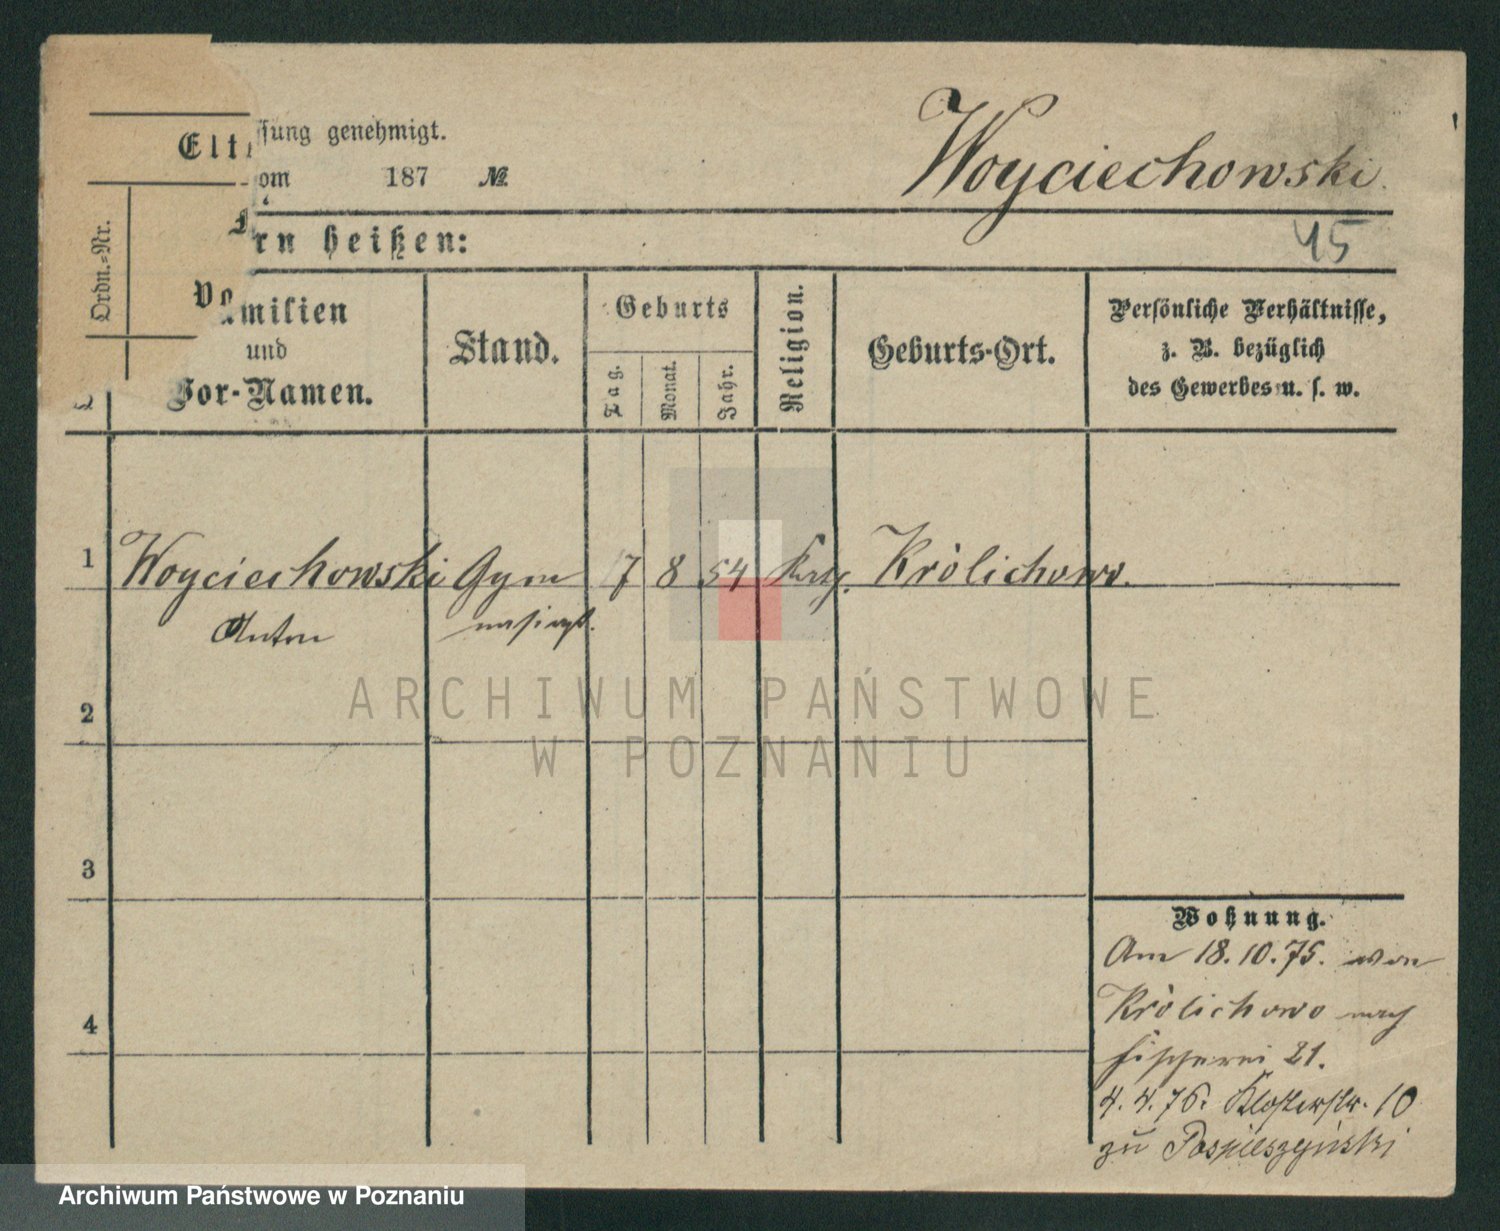 Elt
ssung genehmigt.
om 187 №.
Woyciechowski
45
rn heißen:
Ordn.-Nr.
amilien
und
Vor-Namen.
Stand.
Geburts
Tag.
Monat.
Jahr.
Religion.
Geburts-Ort.
Persönliche Verhältnisse,
z. B. bezüglich
des Gewerbes u. s. w.
1 Woyciechowski Gym 7 8 54 Kath. Królichowo.
Anton nasiast.
2
3
4
Wohnung.
Am 18.10.75. von
Królichowo nach
Fischerei 21.
4.4.76. Klosterstr. 10
zu Pospieszyński
ARCHIWUM PAŃSTWOWE
W POZNANIU
Archiwum Państwowe w Poznaniu